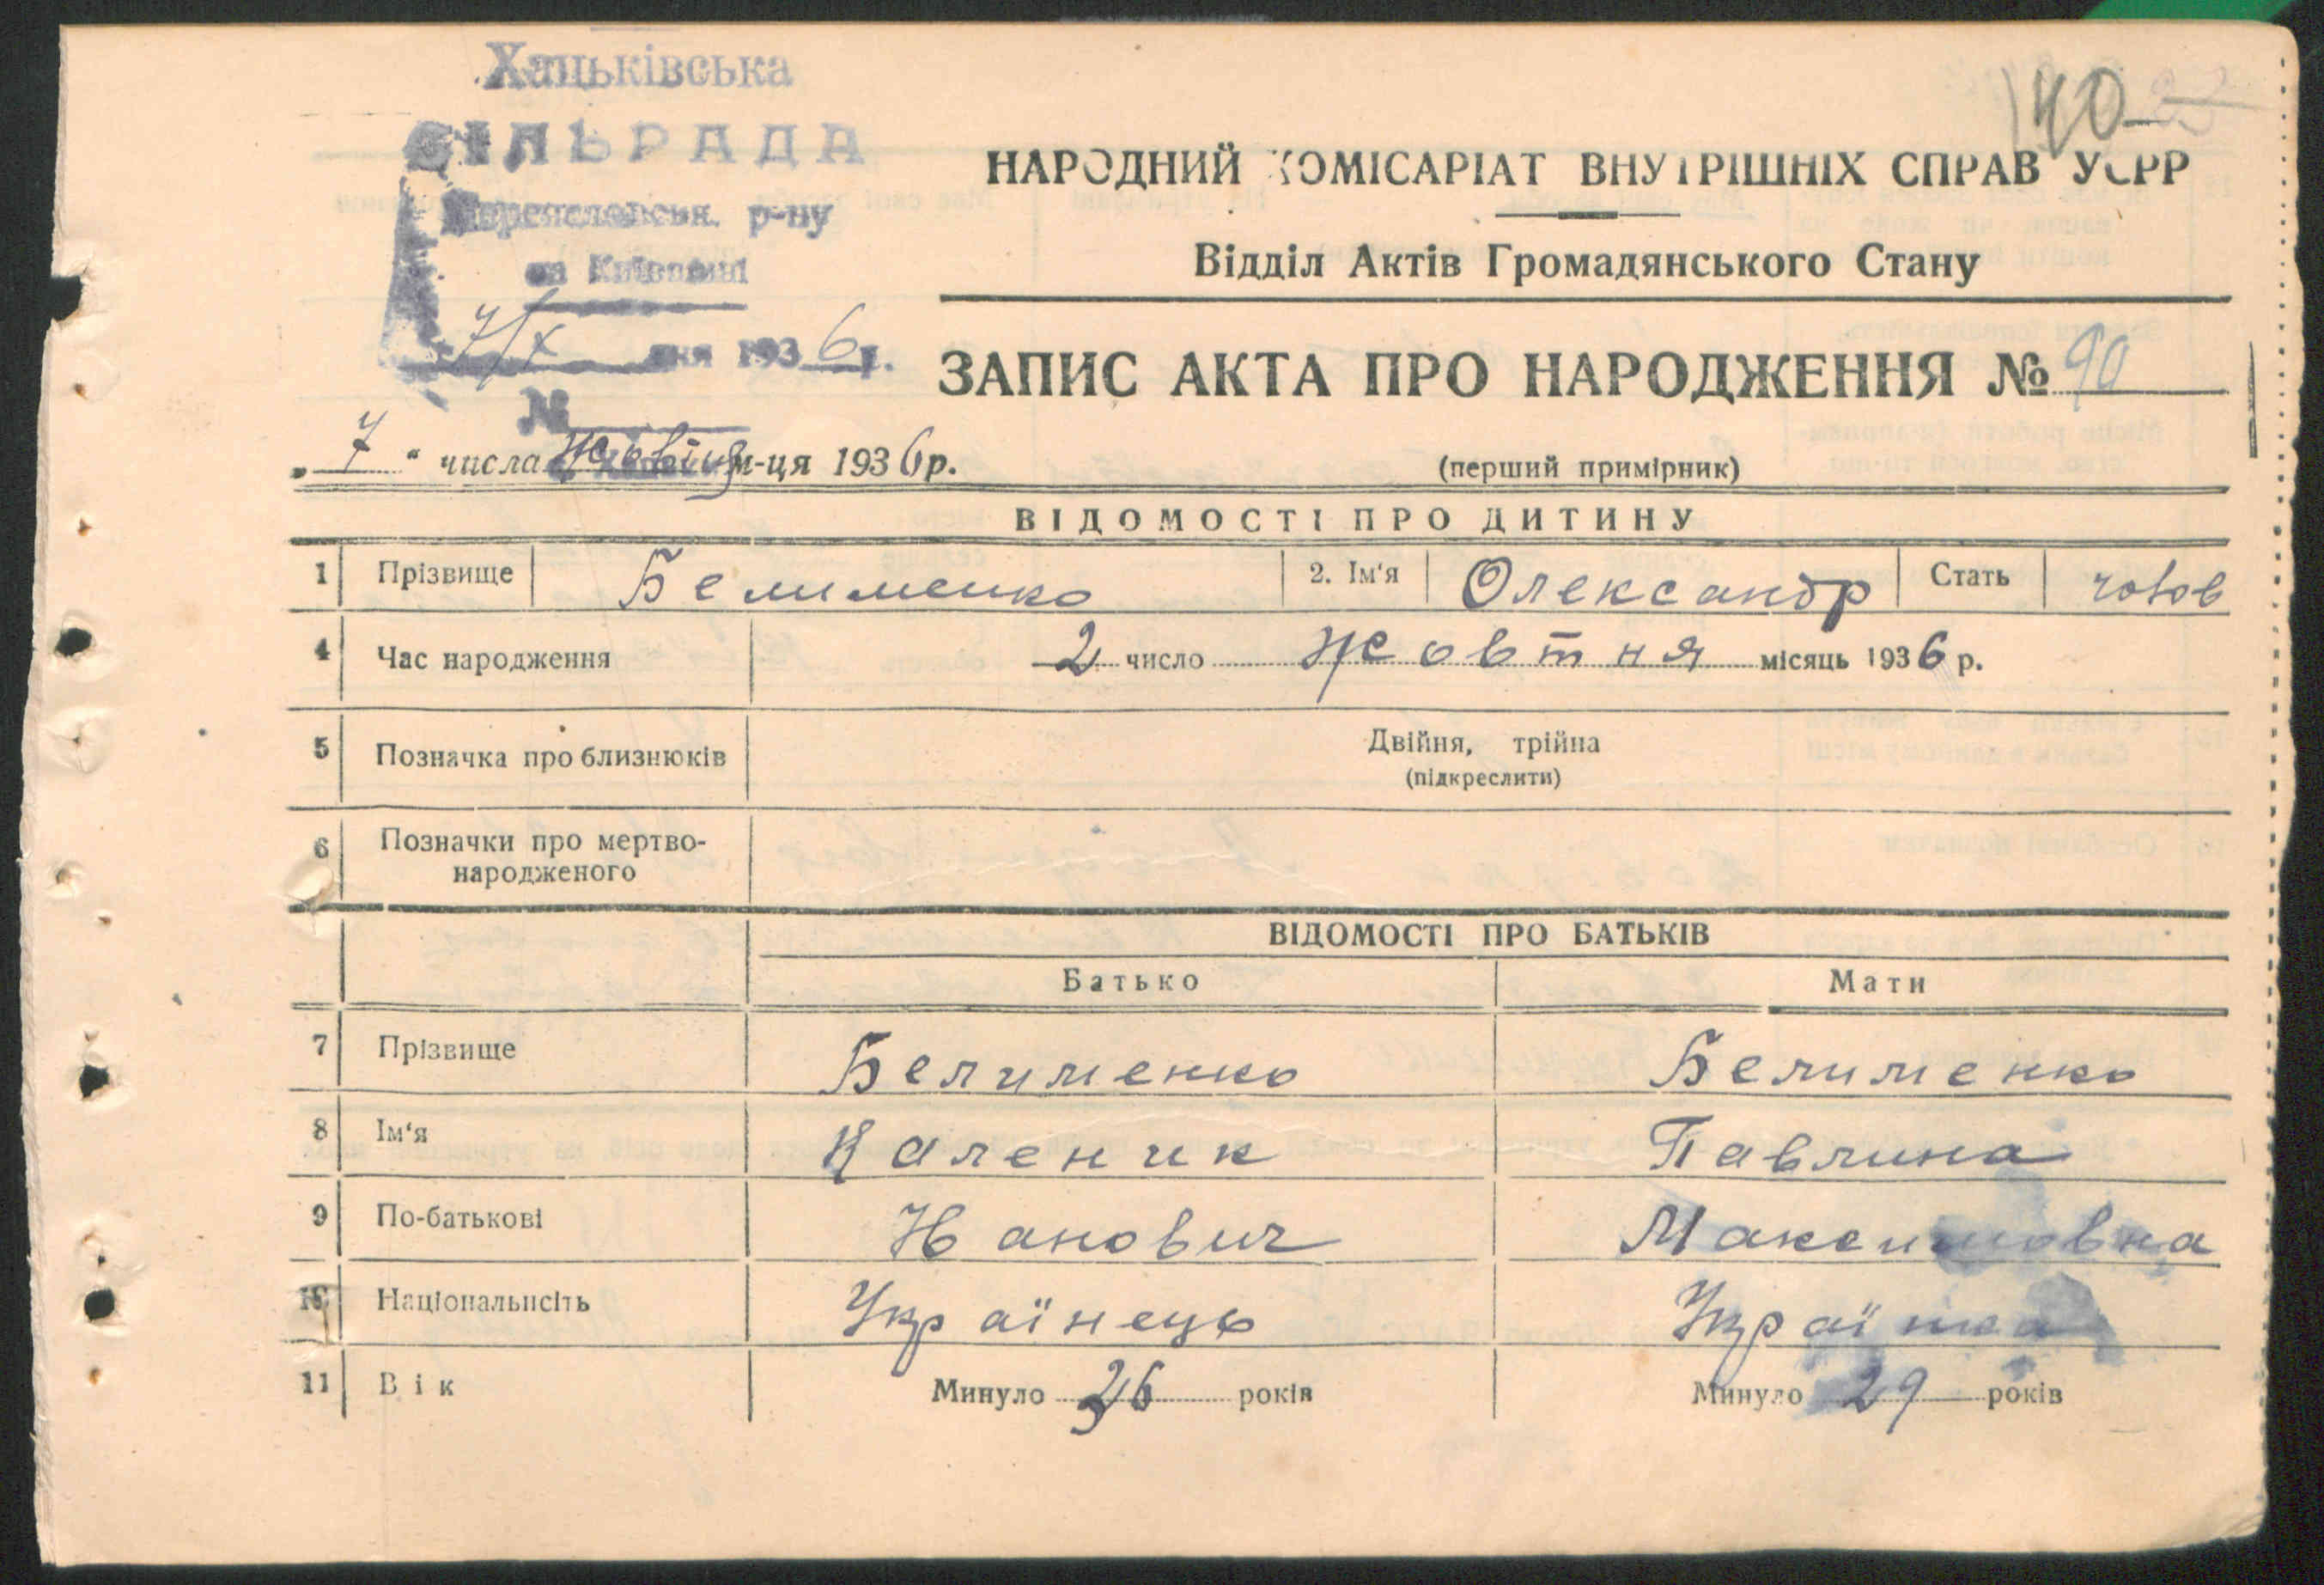 Хацьківська
СІЛЬРАДА
р-ну
на Київщині
7/X дня 1936 р.
№
40
НАРОДНИЙ КОМІСАРІАТ ВНУТРІШНІХ СПРАВ УСРР
Відділ Актів Громадянського Стану
ЗАПИС АКТА ПРО НАРОДЖЕННЯ № 90
„7“ числа Жовтня м-ця 1936 р.
(перший примірник)
ВІДОМОСТІ ПРО ДИТИНУ
1 Прізвище Белименко 2. Ім'я Олександр Стать чолов
4 Час народження 2 число Жовтня місяць 1936 р.
5 Позначка про близнюків Двійня, трійна
(підкреслити)
6 Позначки про мертво-
народженого
ВІДОМОСТІ ПРО БАТЬКІВ
Батько Мати
7 Прізвище Белименко Белименко
8 Ім'я Каленик Павлина
9 По-батькові Іванович Максимовна
10 Національнсіть Українець Українка
11 Вік Минуло 36 років Минуло 29 років